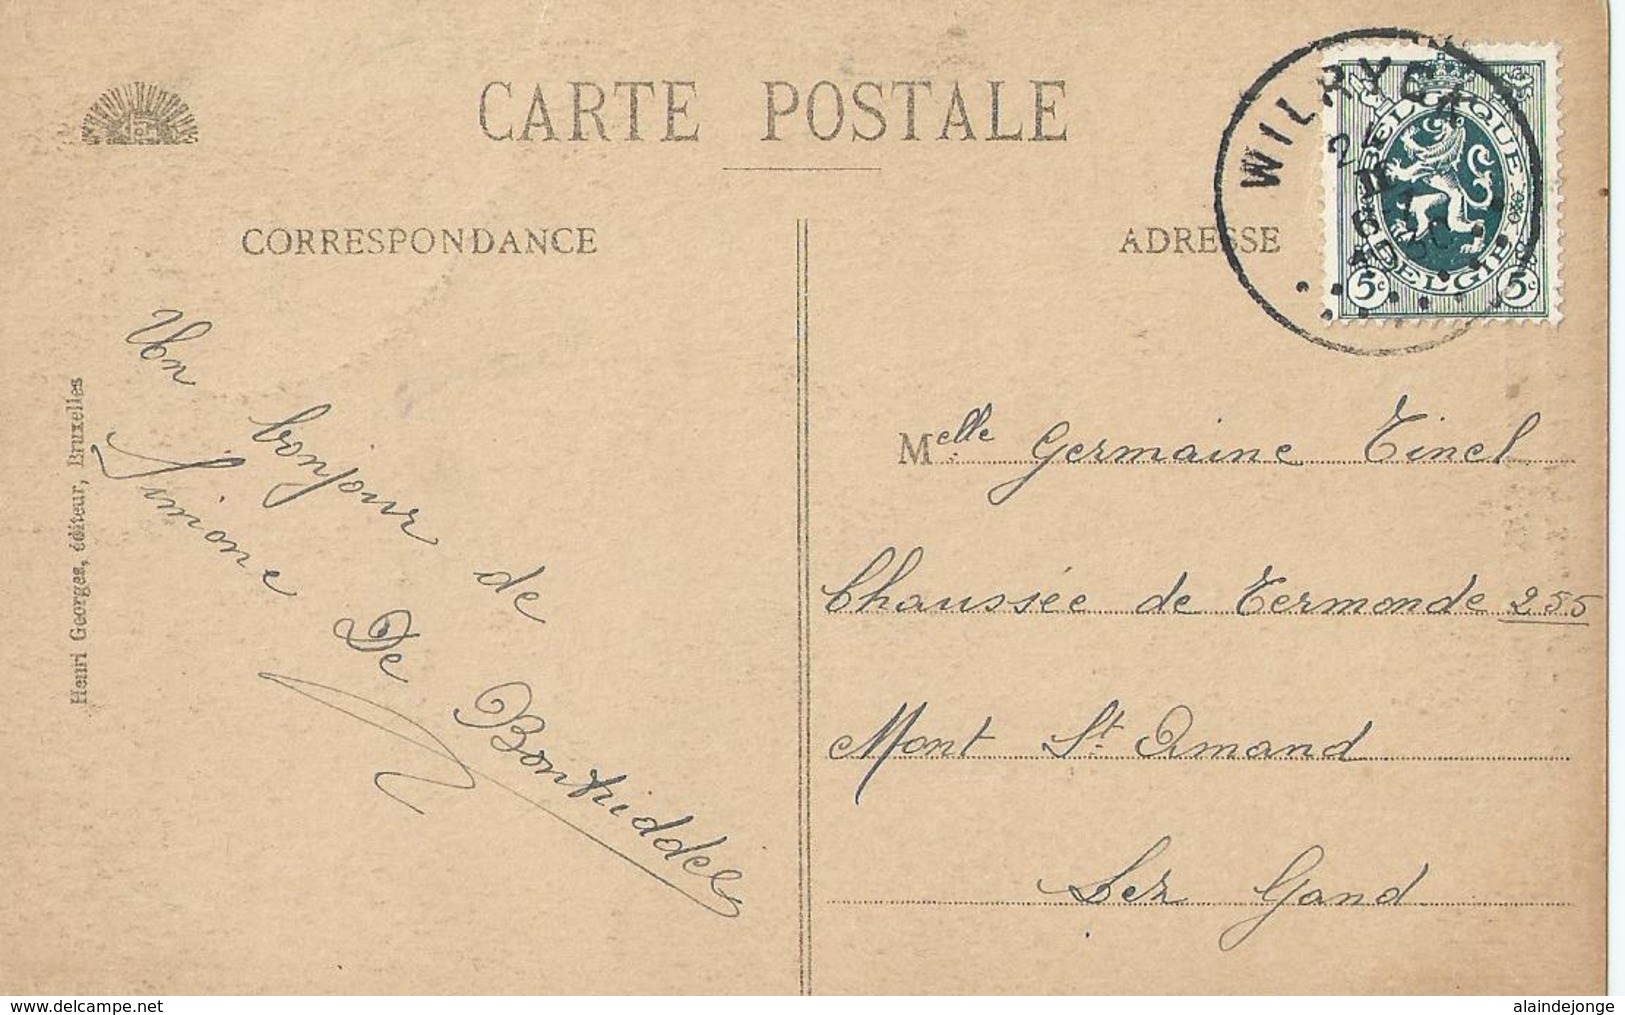 CARTE POSTALE
CORRESPONDANCE
ADRESSE
WILRYCK
BELGIQUE
BELGIE
5c 5c
Henri Georges, éditeur, Bruxelles
Un bonjour de
Simone De Bontridder
Melle Germaine Tinel
Chaussée de Termonde 255
Mont St. Amand
Lez Gand
www.delcampe.net
alaindejonge